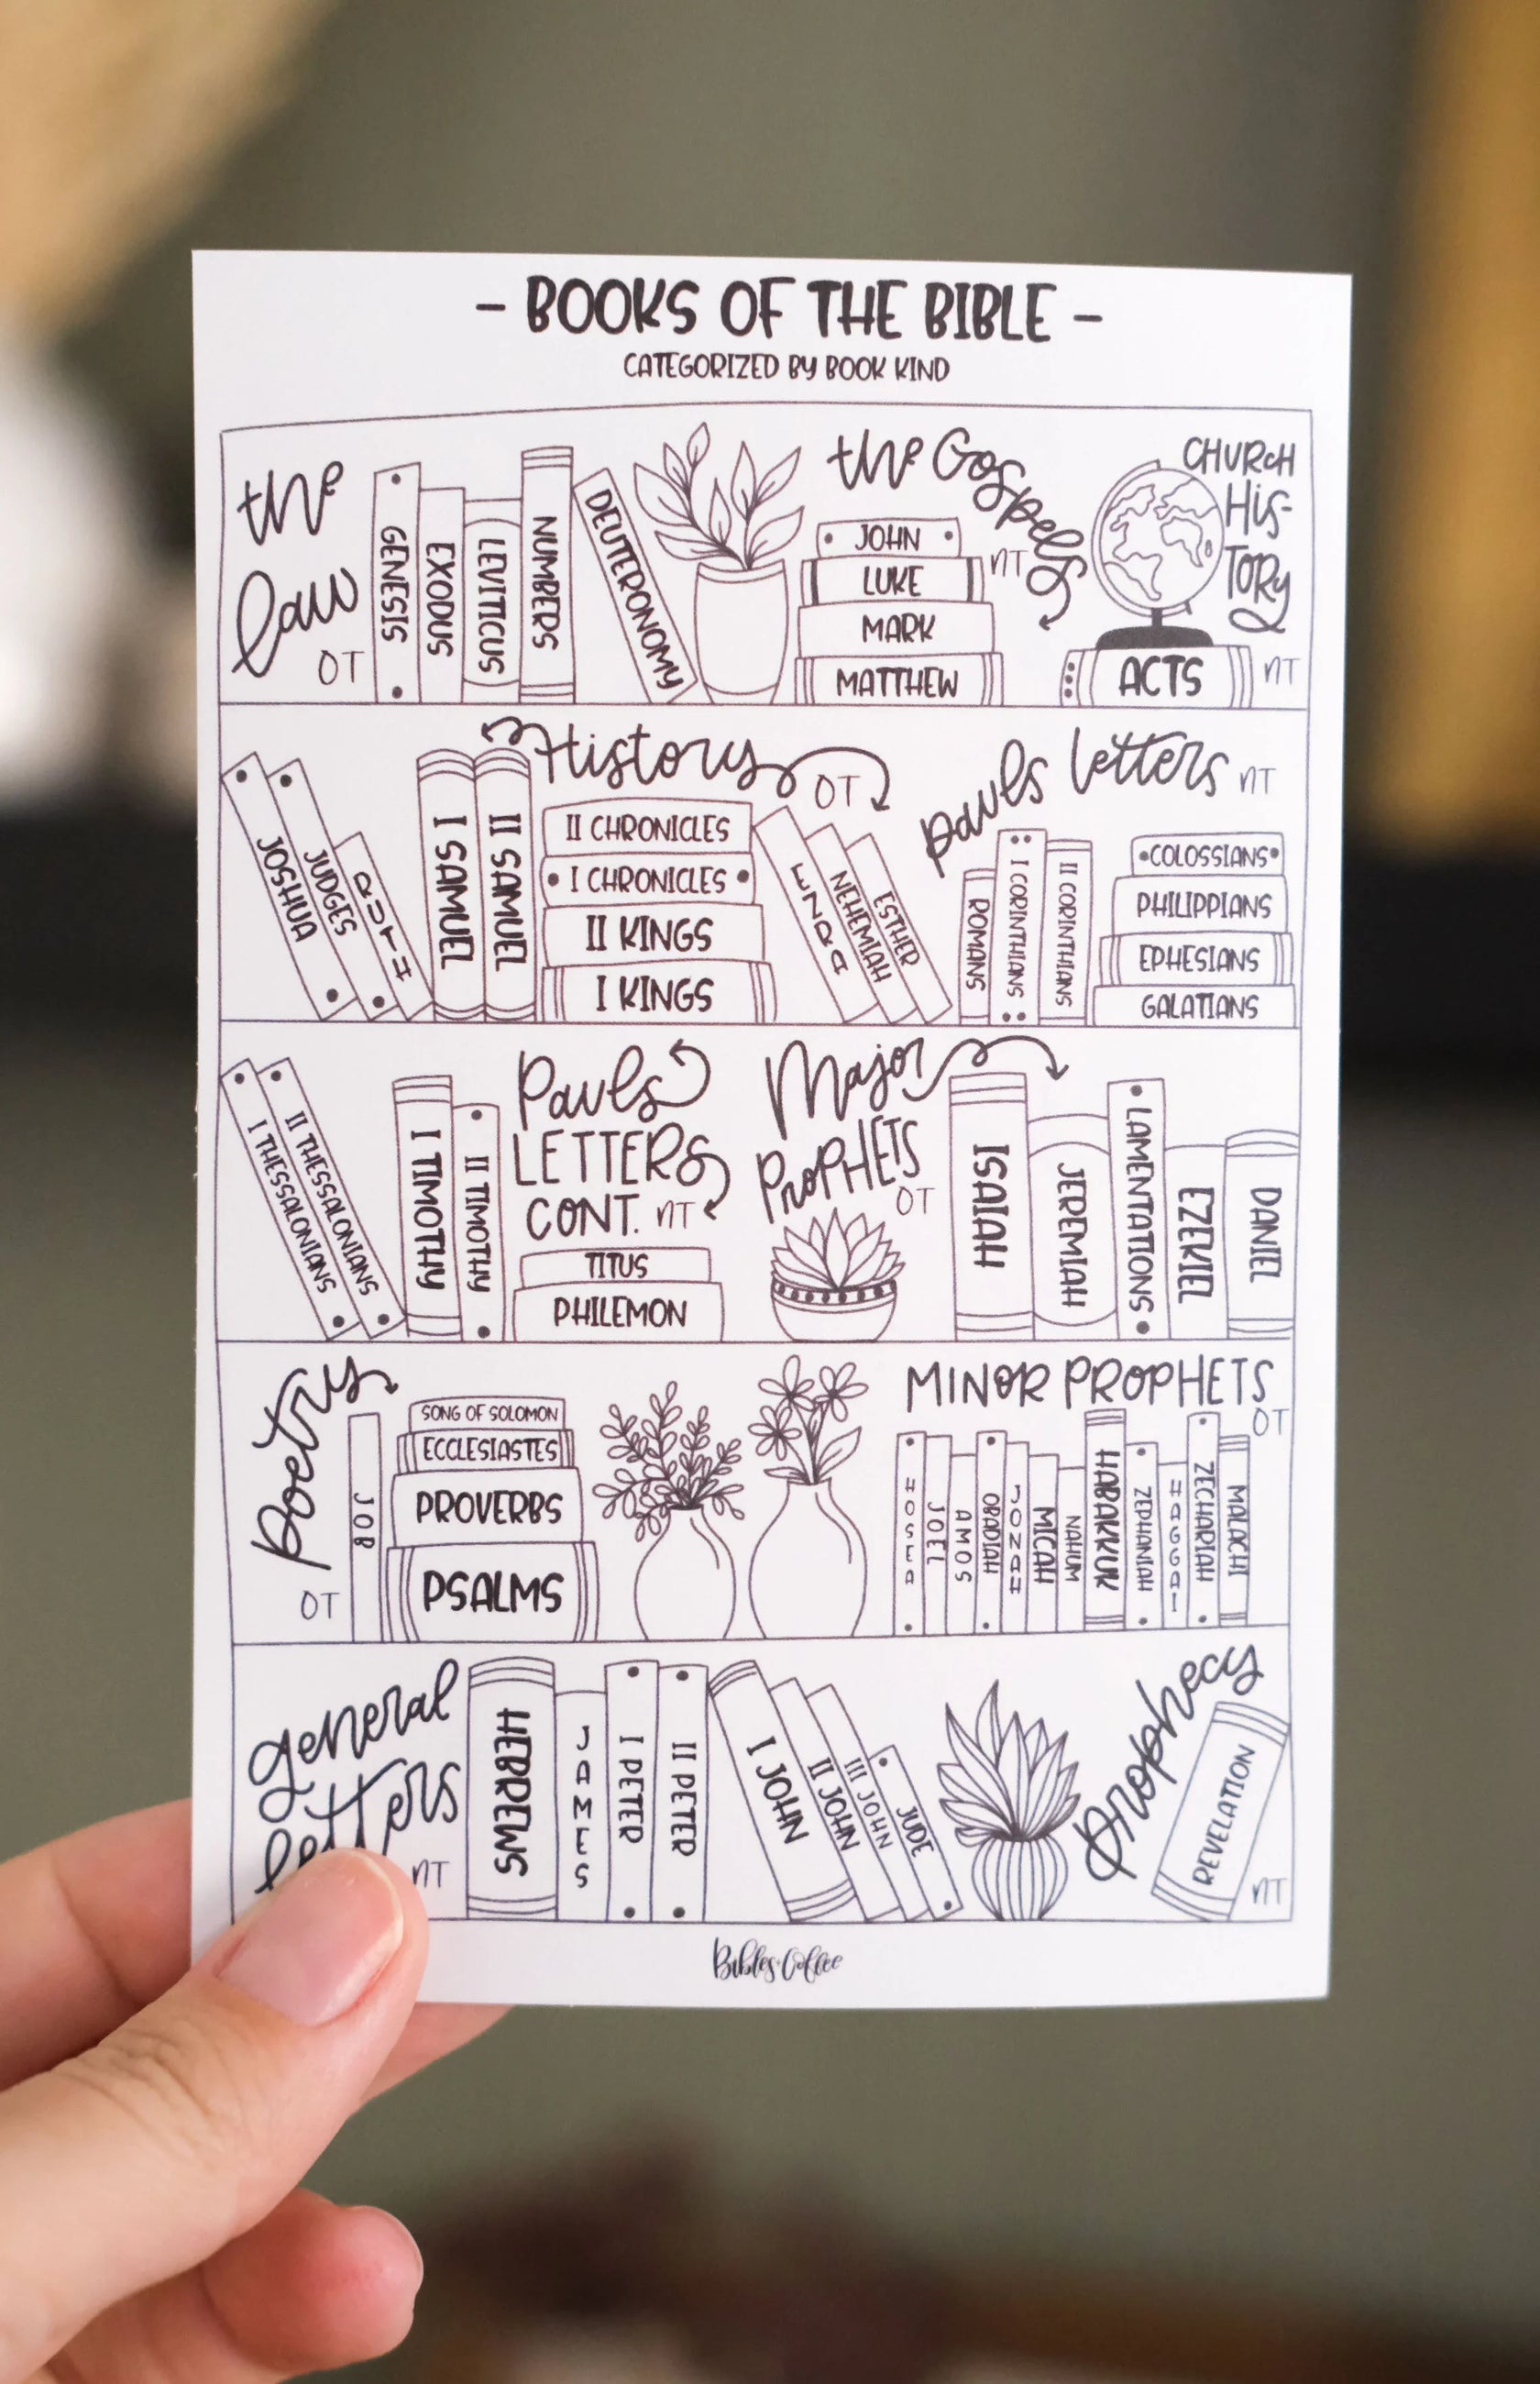 - BOOKS OF THE BIBLE -
CATEGORIZED BY BOOK KIND
the
law
OT
GENESIS
EXODUS
LEVITICUS
NUMBERS
DEUTERONOMY
the Gospels
NT
JOHN
LUKE
MARK
MATTHEW
CHURCH
HIS-
TORY
ACTS
NT
History
OT
JOSHUA
JUDGES
RUTH
I SAMUEL
II SAMUEL
II CHRONICLES
I CHRONICLES
II KINGS
I KINGS
EZRA
NEHEMIAH
ESTHER
pauls letters NT
ROMANS
I CORINTHIANS
II CORINTHIANS
COLOSSIANS
PHILIPPIANS
EPHESIANS
GALATIANS
I THESSALONIANS
II THESSALONIANS
I TIMOTHY
II TIMOTHY
Pauls
LETTERS
CONT. NT
TITUS
PHILEMON
Major
PROPHETS
OT
ISAIAH
JEREMIAH
LAMENTATIONS
EZEKIEL
DANIEL
Poetry
OT
JOB
SONG OF SOLOMON
ECCLESIASTES
PROVERBS
PSALMS
MINOR PROPHETS
OT
HOSEA
JOEL
AMOS
OBADIAH
JONAH
MICAH
NAHUM
HABAKKUK
ZEPHANIAH
HAGGAI
ZECHARIAH
MALACHI
general
letters
NT
HEBREWS
JAMES
I PETER
II PETER
I JOHN
II JOHN
III JOHN
JUDE
prophecy
REVELATION
NT
Bibles & Coffee